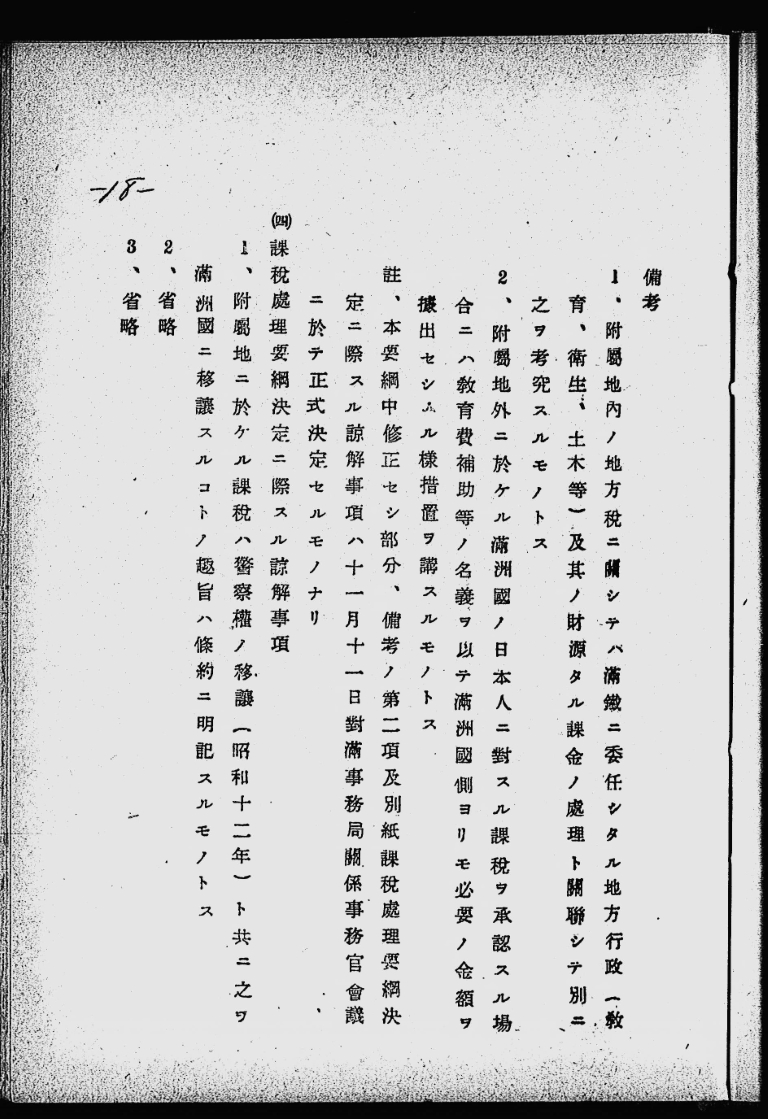 備考
1、附屬地内ノ地方税ニ關シテハ滿鐵ニ委任シタル地方行政（敎
育、衞生、土木等）及其ノ財源タル課金ノ處理ト關聯シテ別ニ
之ヲ考究スルモノトス
2、附屬地外ニ於ケル滿洲國ノ日本人ニ對スル課税ヲ承認スル場
合ニハ敎育費補助等ノ名義ヲ以テ滿洲國側ヨリモ必要ノ金額ヲ
據出セシムル樣措置ヲ講スルモノトス
註、本要綱中修正セシ部分、備考ノ第二項及別紙課税處理要綱決
定ニ際スル諒解事項ハ十一月十一日對滿事務局關係事務官會議
ニ於テ正式決定セルモノナリ
㈣課税處理要綱決定ニ際スル諒解事項
1、附屬地ニ於ケル課税ハ警察權ノ移讓（昭和十二年）ト共ニ之ヲ
滿洲國ニ移讓スルコトノ趣旨ハ條約ニ明記スルモノトス
2、省略
3、省略
-18-